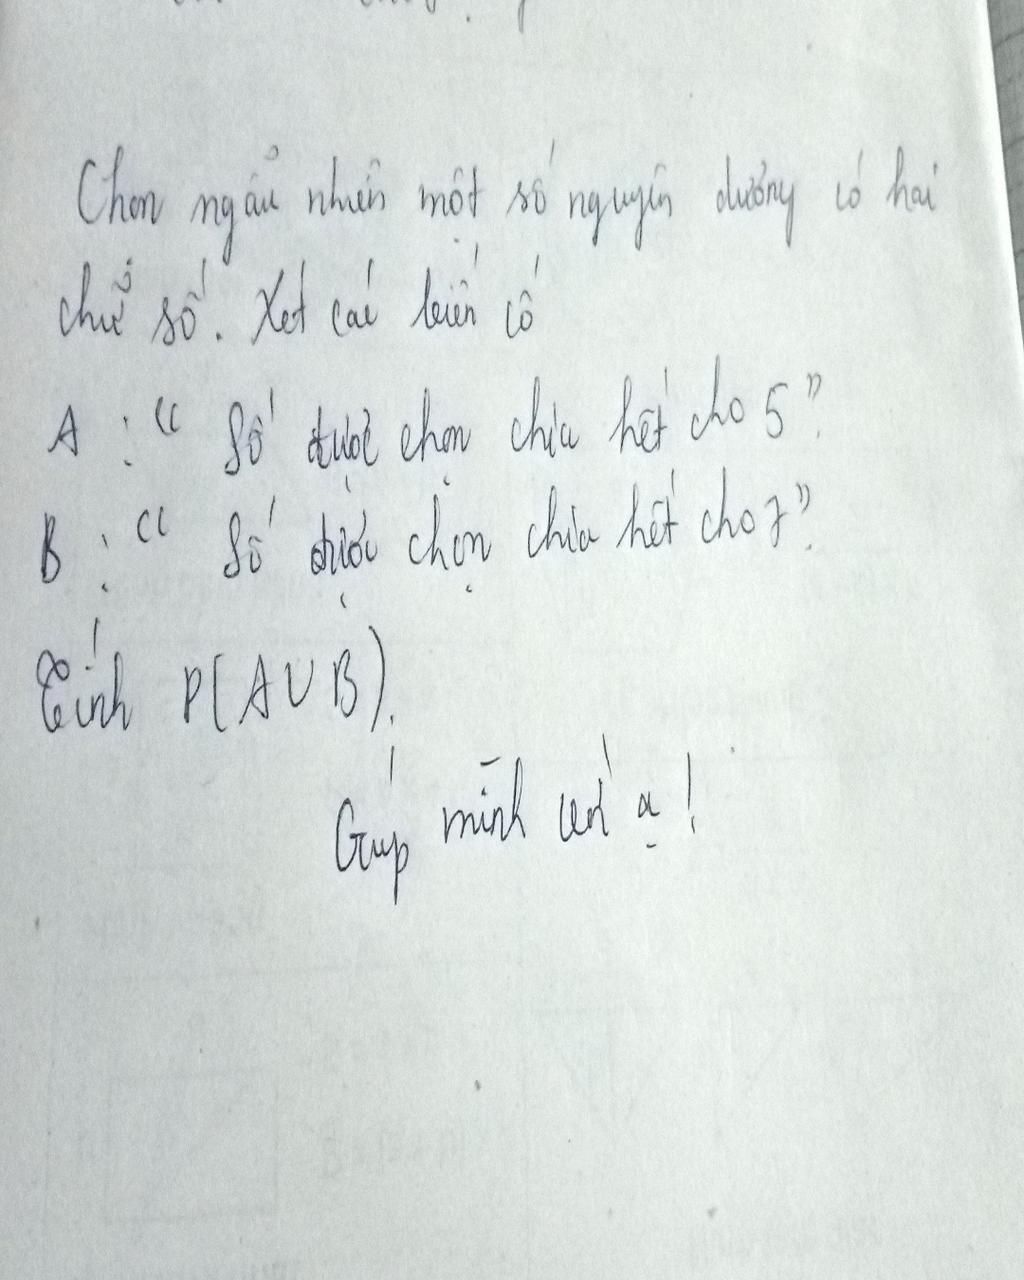 Chọn ngẩu nhiên một số nguyên dương có hai
chữ số. Xét các biến cố
A : " Số được chọn chia hết cho 5".
B : " Số được chọn chia hết cho 7".
Tính P(A∪B).
Giúp mình với ạ!